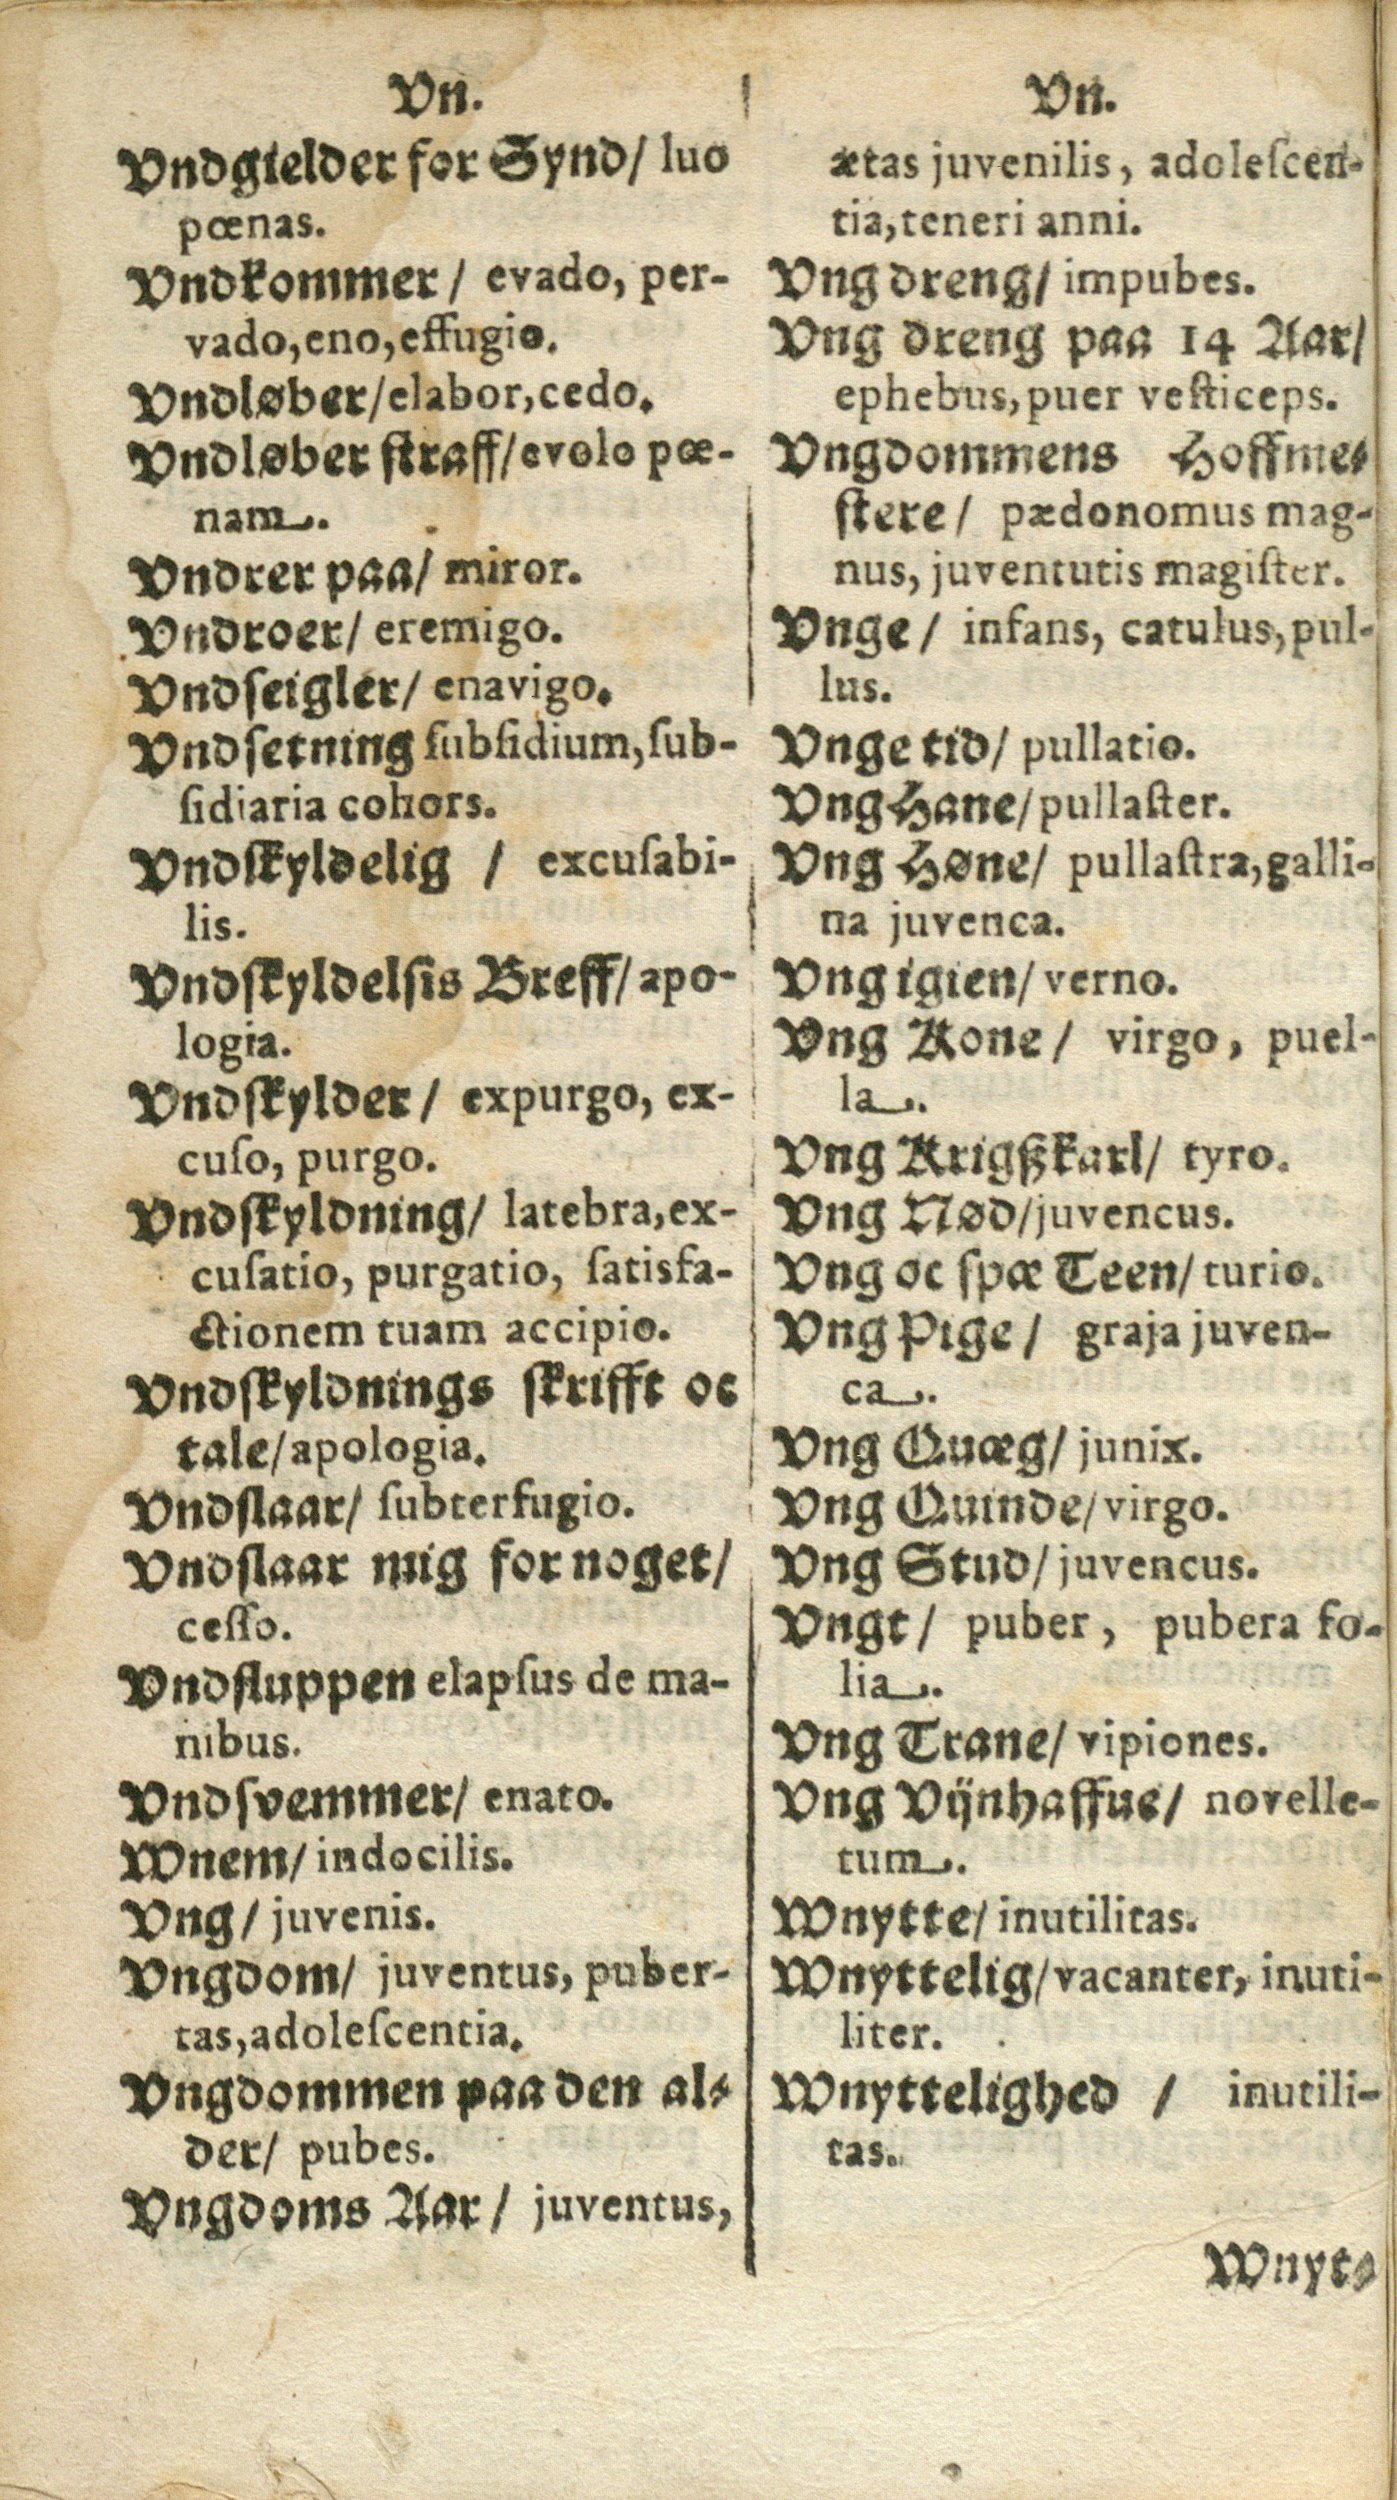 Vn.
Vndgielder for Synd/ luo
pœnas.
Vndkommer/ evado, per-
vado, eno, effugio.
Vndløber/ elabor, cedo.
Vndløber ſtraff/ evolo pœ-
nam.
Vndrer paa/ miror.
Vndroer/ eremigo.
Vndſeigler/ enavigo.
Vndſetning ſubſidium, ſub-
ſidiaria cohors.
Vndſkyldelig / excuſabi-
lis.
Vndſkyldelſis Breff/ apo-
logia.
Vndſkylder/ expurgo, ex-
cuſo, purgo.
Vndſkyldning/ latebra, ex-
cuſatio, purgatio, ſatisfa-
ctionem tuam accipio.
Vndſkyldnings ſkrifft oc
tale/ apologia.
Vndſlaar/ ſubterfugio.
Vndſlaar mig for noget/
ceſſo.
Vndſluppen elapſus de ma-
nibus.
Vndſvemmer/ enato.
Wnem/ indocilis.
Vng/ juvenis.
Vngdom/ juventus, puber-
tas, adoleſcentia.
Vngdommen paa den al-
der/ pubes.
Vngdoms Aar/ juventus,
Vn.
ætas juvenilis, adoleſcen-
tia, teneri anni.
Vng dreng/ impubes.
Vng dreng paa 14 Aar/
ephebus, puer veſticeps.
Vngdommens Hoffme-
ſtere/ pædonomus mag-
nus, juventutis magiſter.
Vnge/ infans, catulus, pul-
lus.
Vnge tid/ pullatio.
Vng Hane/ pullaſter.
Vng Høne/ pullaſtra, galli-
na juvenca.
Vng igien/ verno.
Vng Kone/ virgo, puel-
la.
Vng Krigßkarl/ tyro.
Vng Nød/ juvencus.
Vng oc ſpæ Teen/ turio.
Vng Pige/ graja juven-
ca.
Vng Quæg/ junix.
Vng Quinde/ virgo.
Vng Stud/ juvencus.
Vngt/ puber, pubera fo-
lia.
Vng Trane/ vipiones.
Vng Vijnhaffue/ novelle-
tum.
Wnytte/ inutilitas.
Wnyttelig/ vacanter, inuti-
liter.
Wnyttelighed / inutili-
tas.
Wnyt-